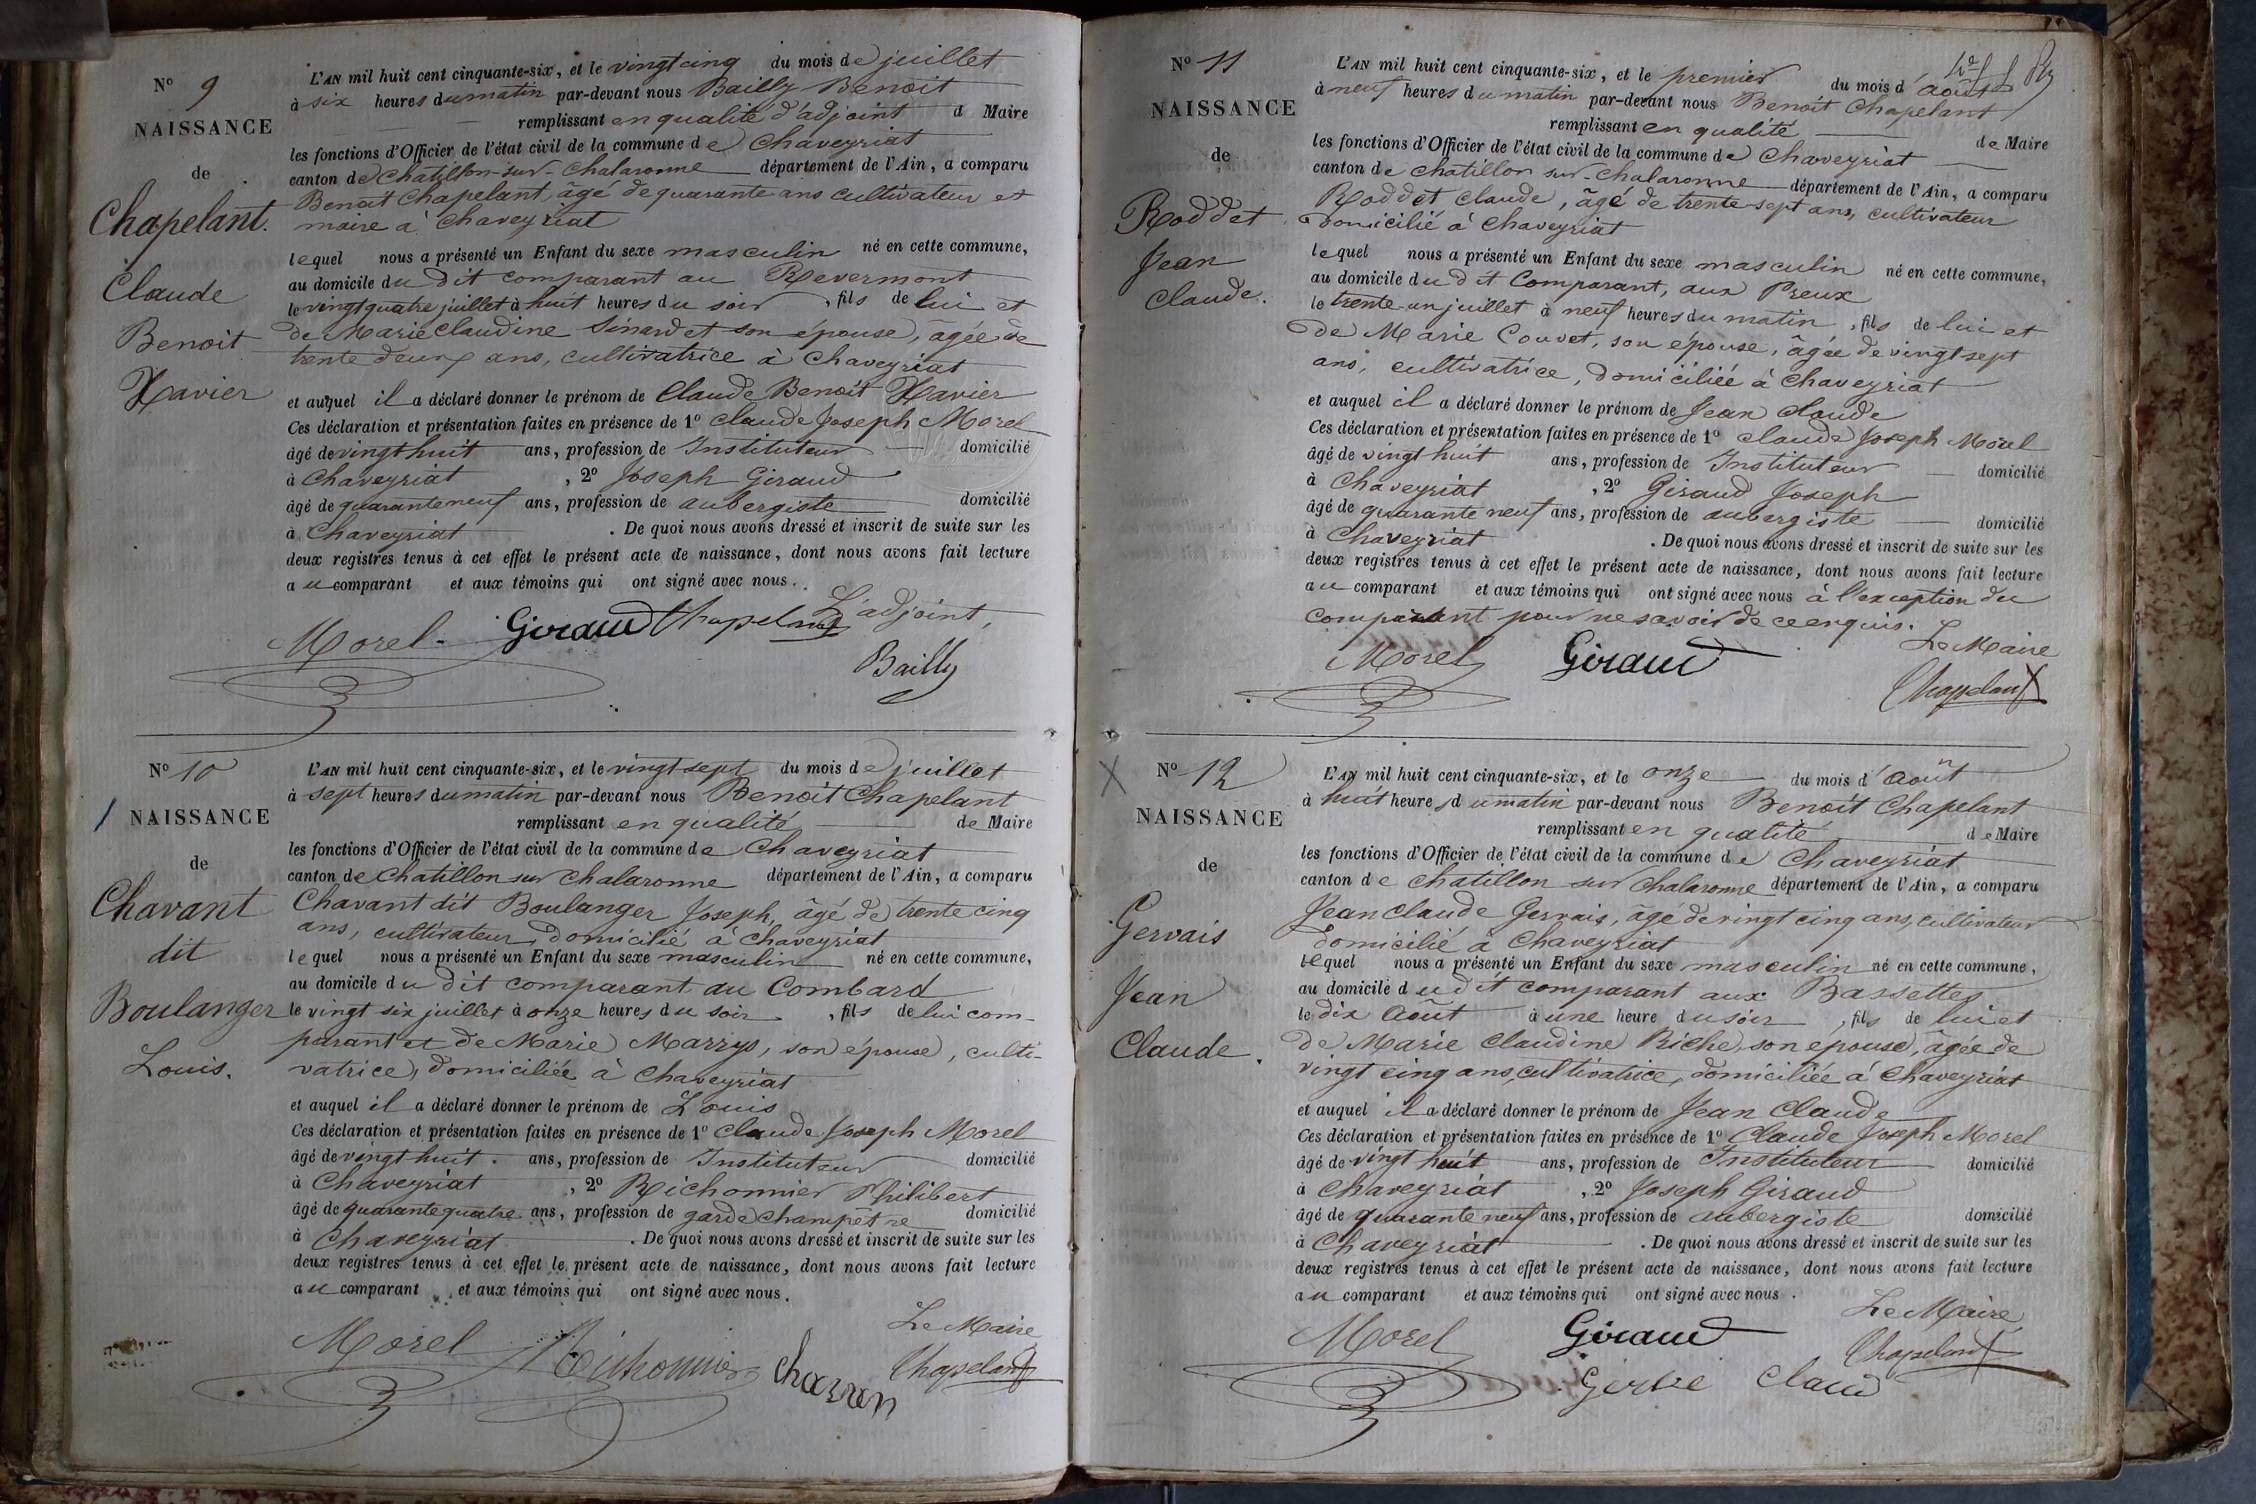 N° 9
NAISSANCE
de
Chapelant.
Claude
Benoit
Xavier
L'AN mil huit cent cinquante-six, et le vingt cinq du mois de juillet
à six heures du matin par-devant nous Bailly Benoit
remplissant en qualité d'adjoint d Maire
les fonctions d'Officier de l'état civil de la commune de Chaveyriat
canton de Chatillon-sur-Chalaronne département de l'Ain, a comparu
Benoit Chapelant, âgé de quarante ans cultivateur et
maire à Chaveyriat
lequel nous a présenté un Enfant du sexe masculin né en cette commune,
au domicile du dit comparant au Revermont
le vingt quatre juillet à huit heures du soir, fils de lui et
de Marie Claudine Sinardet son épouse, agée de
trente deux ans, cultivatrice à Chaveyriat
et auquel il a déclaré donner le prénom de Claude Benoit Xavier
Ces déclaration et présentation faites en présence de 1° Claude Joseph Morel
âgé de vingt huit ans, profession de Instituteur domicilié
à Chaveyriat, 2° Joseph Giraud
âgé de quarante neuf ans, profession de aubergiste domicilié
à Chaveyriat. De quoi nous avons dressé et inscrit de suite sur les
deux registres tenus à cet effet le présent acte de naissance, dont nous avons fait lecture
au comparant et aux témoins qui ont signé avec nous.
L'adjoint,
Morel Giraud Chapelant
Bailly
N° 10
NAISSANCE
de
Chavant
dit
Boulanger
Louis.
L'AN mil huit cent cinquante-six, et le vingt sept du mois de juillet
à sept heures du matin par-devant nous Benoit Chapelant
remplissant en qualité de Maire
les fonctions d'Officier de l'état civil de la commune de Chaveyriat
canton de Chatillon sur Chalaronne département de l'Ain, a comparu
Chavant dit Boulanger Joseph, âgé de trente cinq
ans, cultivateur, domicilié à Chaveyriat
lequel nous a présenté un Enfant du sexe masculin né en cette commune,
au domicile du dit comparant au Combard
le vingt six juillet à onze heures du soir, fils de lui com-
parant et de Marie Marzys, son épouse, culti-
vatrice, domiciliée à Chaveyriat
et auquel il a déclaré donner le prénom de Louis
Ces déclaration et présentation faites en présence de 1° Claude Joseph Morel
âgé de vingt huit ans, profession de Instituteur domicilié
à Chaveyriat, 2° Richonnier Philibert
âgé de quarante quatre ans, profession de garde champêtre domicilié
à Chaveyriat. De quoi nous avons dressé et inscrit de suite sur les
deux registres tenus à cet effet le présent acte de naissance, dont nous avons fait lecture
au comparant et aux témoins qui ont signé avec nous.
Le Maire
Morel Richonnier Chapelant
N° 11
NAISSANCE
de
Roddet
Jean
Claude.
L'AN mil huit cent cinquante-six, et le premier du mois d'août
à neuf heures du matin par-devant nous Benoit Chapelant
remplissant en qualité de Maire
les fonctions d'Officier de l'état civil de la commune de Chaveyriat
canton de Chatillon sur-Chalaronne département de l'Ain, a comparu
Roddet Claude, âgé de trente-sept ans, cultivateur
domicilié à Chaveyriat
lequel nous a présenté un Enfant du sexe masculin né en cette commune,
au domicile du dit Comparant, aux Preux
le trente-un juillet à neuf heures du matin, fils de lui et
de Marie Couvet, son épouse, âgée de vingt sept
ans, cultivatrice, domiciliée à Chaveyriat
et auquel il a déclaré donner le prénom de Jean Claude
Ces déclaration et présentation faites en présence de 1° Claude Joseph Morel
âgé de vingt huit ans, profession de Instituteur domicilié
à Chaveyriat, 2° Giraud Joseph
âgé de quarante neuf ans, profession de aubergiste domicilié
à Chaveyriat. De quoi nous avons dressé et inscrit de suite sur les
deux registres tenus à cet effet le présent acte de naissance, dont nous avons fait lecture
au comparant et aux témoins qui ont signé avec nous à l'exception du
comparant pour ne savoir de ce enquis.
Le Maire
Morel Giraud
Chapelant
N° 12
NAISSANCE
de
Gervais
Jean
Claude.
L'AN mil huit cent cinquante-six, et le onze du mois d'Août
à huit heures du matin par-devant nous Benoit Chapelant
remplissant en qualité de Maire
les fonctions d'Officier de l'état civil de la commune de Chaveyriat
canton de Chatillon sur Chalaronne département de l'Ain, a comparu
Jean Claude Gervais, âgé de vingt cinq ans, cultivateur
domicilié à Chaveyriat
lequel nous a présenté un Enfant du sexe masculin né en cette commune,
au domicile du dit comparant aux Bassettes
le dix Août à une heure du soir, fils de lui et
de Marie Claudine Riche, son épouse, âgée de
vingt cinq ans, cultivatrice, domiciliée à Chaveyriat
et auquel il a déclaré donner le prénom de Jean Claude
Ces déclaration et présentation faites en présence de 1° Claude Joseph Morel
âgé de vingt huit ans, profession de Instituteur domicilié
à Chaveyriat, 2° Joseph Giraud
âgé de quarante neuf ans, profession de aubergiste domicilié
à Chaveyriat. De quoi nous avons dressé et inscrit de suite sur les
deux registres tenus à cet effet le présent acte de naissance, dont nous avons fait lecture
au comparant et aux témoins qui ont signé avec nous.
Le Maire
Morel Giraud Chapelant